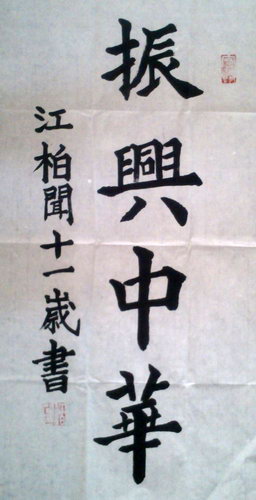 振興中華
江柏聞十一歲書